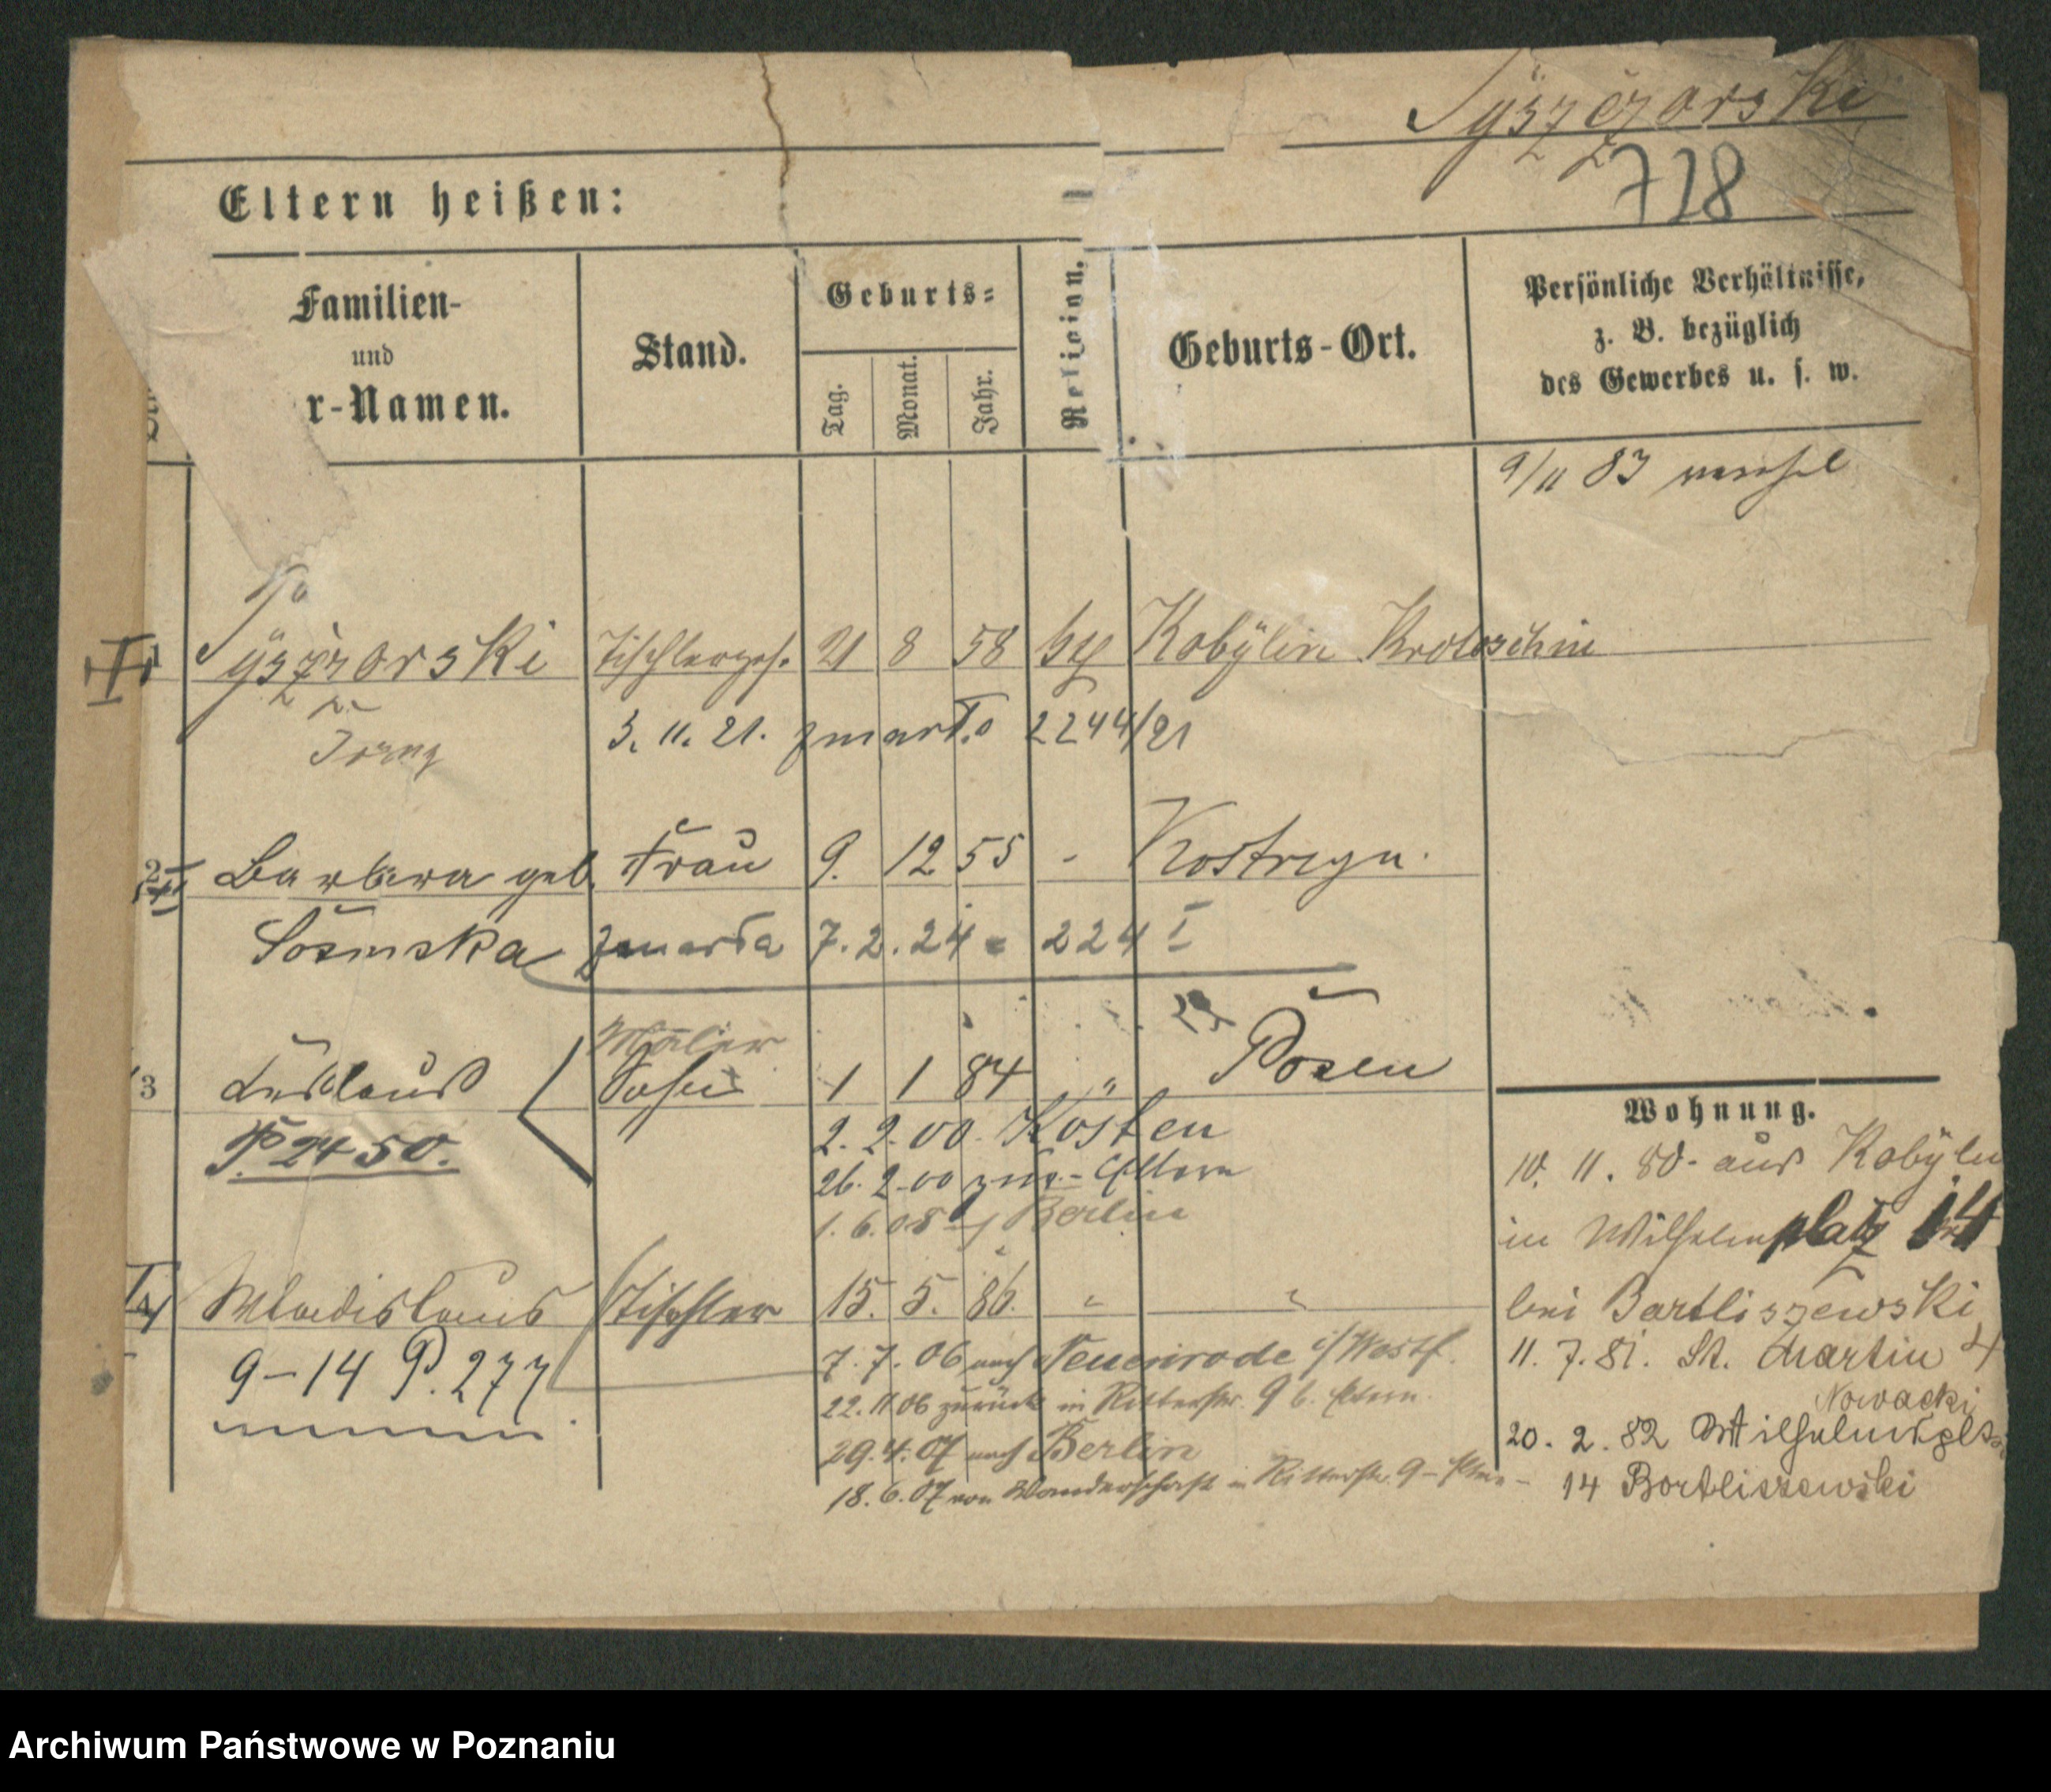 Tyszczorski
728
Eltern heißen:
Familien-
und
r-Namen.
Stand.
Geburts=
Tag.
Monat.
Jahr.
Religion.
Geburts-Ort.
Persönliche Verhältnisse,
z. B. bezüglich
des Gewerbes u. s. w.
9/11 83
1 Tischlerges. 21 8 58 Kobÿlin Krotoschin
3. 11. 21. zmarł 2244/21
2 Barbara geb. Frau 9. 12 55 - Kostrzyn.
zmarła 7. 2. 24 224 I
Maler
3 Sohn 1 1 84 " Posen
P. 2450.
2. 2. 00. Kosten
26. 2. 00 Eltern
1. 6. 08 Berlin
4 Wladislaus Tischler 15. 5. 86. " "
9-14 P. 277
7. 7. 06 nach Neuenrode i/Westf.
22. 11 06 zurück in Ritterstr. 9 b. Eltern
29. 4. 07 nach Berlin
18. 6. 07 von Wanderschaft in Ritterstr. 9
Wohnung.
10. 11. 80. aus Kobÿlin
in Wilhelmsplatz 14
bei Bartliszewski
11. 7. 81. St. Martin 4
Nowacki
20. 2. 82 Wilhelmspl
14 Bartliszewski
Archiwum Państwowe w Poznaniu